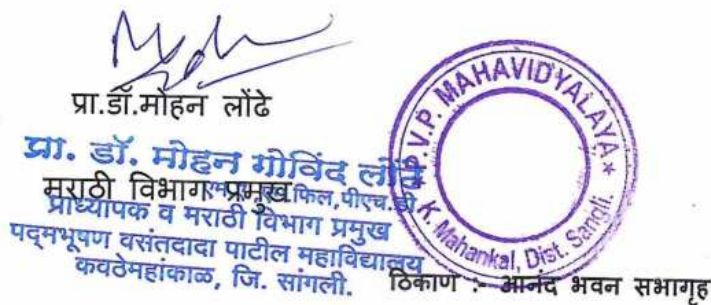 प्रा.डॉ.मोहन लोंढे
प्रा. डॉ. मोहन गोविंद लोंढे
मराठी विभाग प्रमुख
फिल,पीएच.डी
प्राध्यापक व मराठी विभाग प्रमुख
पद्मभूषण वसंतदादा पाटील महाविद्यालय
कवठेमहांकाळ, जि. सांगली.
P.V.P. MAHAVIDYALAYA
K. Mahankal, Dist. Sangli.
ठिकाण :- आनंद भवन सभागृह